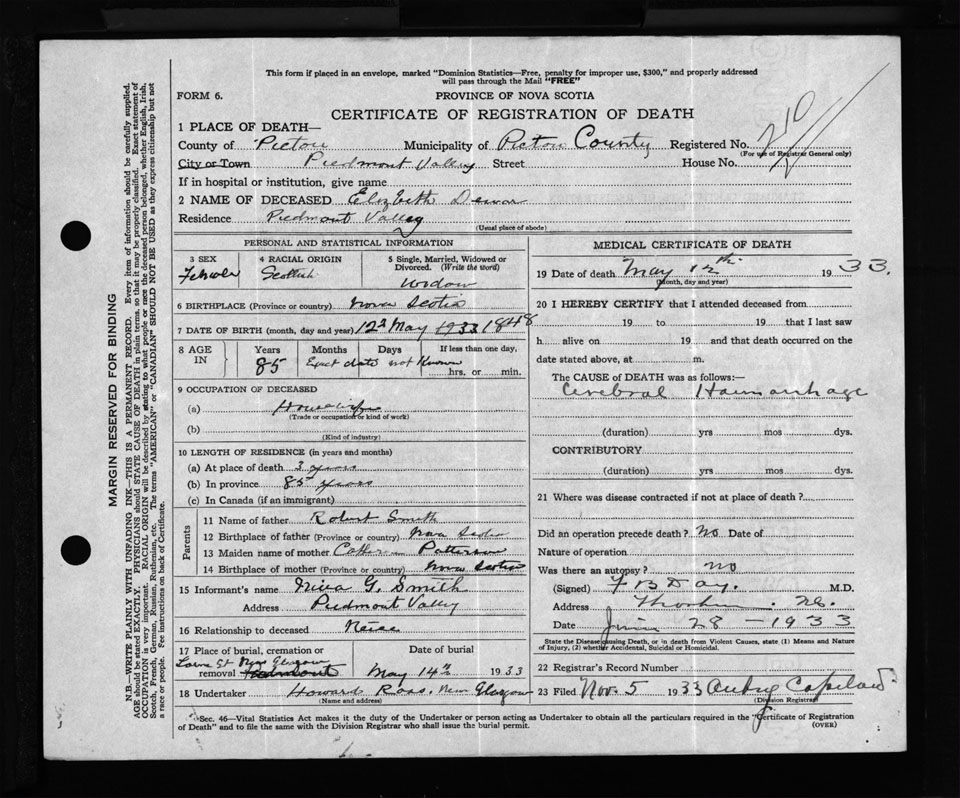 This form if placed in an envelope, marked "Dominion Statistics—Free, penalty for improper use, $300," and properly addressed
will pass through the Mail "FREE"
FORM 6.
PROVINCE OF NOVA SCOTIA
CERTIFICATE OF REGISTRATION OF DEATH
1 PLACE OF DEATH—
County of Pictou Municipality of Pictou County Registered No. 210
(For use of Registrar General only)
City or Town Piedmont Valley Street House No.
If in hospital or institution, give name
2 NAME OF DECEASED Elizbeth Dewar
Residence Piedmont Valley
(Usual place of abode)
PERSONAL AND STATISTICAL INFORMATION
3 SEX 4 RACIAL ORIGIN 5 Single, Married, Widowed or
Divorced. (Write the word)
Female Scottish Widow
6 BIRTHPLACE (Province or country) Nova Scotia
7 DATE OF BIRTH (month, day and year) 12 May 1933 1848
8 AGE IN Years Months Days If less than one day,
85 Exact date not Known hrs. or min.
9 OCCUPATION OF DECEASED
(a) Housewife
(Trade or occupation or kind of work)
(b)
(Kind of industry)
10 LENGTH OF RESIDENCE (in years and months)
(a) At place of death 3 years
(b) In province 85 years
(c) In Canada (if an immigrant)
Parents
11 Name of father Robert Smith
12 Birthplace of father (Province or country) Nova Scotia
13 Maiden name of mother Patterson
14 Birthplace of mother (Province or country) Nova Scotia
15 Informant's name G. Smith
Address Piedmont Valley
16 Relationship to deceased Neice
17 Place of burial, cremation or Date of burial
removal New Glasgow Piedmont May 14 1933
18 Undertaker Howard Ross, New Glasgow
(Name and address)
MEDICAL CERTIFICATE OF DEATH
19 Date of death May 12th 1933.
(Month, day and year)
20 I HEREBY CERTIFY that I attended deceased from
19 to 19 that I last saw
h alive on 19 and that death occurred on the
date stated above, at m.
The CAUSE of DEATH was as follows:—
Cerebral Haemorrhage
(duration) yrs mos dys.
CONTRIBUTORY
(duration) yrs mos dys.
21 Where was disease contracted if not at place of death?
Did an operation precede death? No Date of
Nature of operation
Was there an autopsy? no
(Signed) F B Day. M.D.
Address Thorburn. N.S.
Date June 28 - 1933
State the Disease causing Death, or in death from Violent Causes, state (1) Means and Nature
of Injury, (2) whether Accidental, Suicidal or Homicidal.
22 Registrar's Record Number
23 Filed Nov. 5 1933 Copeland
(Division Registrar)
Sec. 46—Vital Statistics Act makes it the duty of the Undertaker or person acting as Undertaker to obtain all the particulars required in the "Certificate of Registration
of Death" and to file the same with the Division Registrar who shall issue the burial permit. (OVER)
MARGIN RESERVED FOR BINDING
N.B.—WRITE PLAINLY WITH UNFADING INK—THIS IS A PERMANENT RECORD. Every item of information should be carefully supplied.
AGE should be stated EXACTLY. PHYSICIANS should STATE CAUSE OF DEATH in plain terms, so that it may be properly classified. Exact statement of
OCCUPATION is very important. RACIAL ORIGIN will be described by stating to what people or race the deceased person belonged, whether English, Irish,
Scotch, French, German, Russian, Ruthenian, etc. The terms "AMERICAN" or "CANADIAN" SHOULD NOT BE USED as they express citizenship but not
a race or people. Fee instructions on back of Certificate.